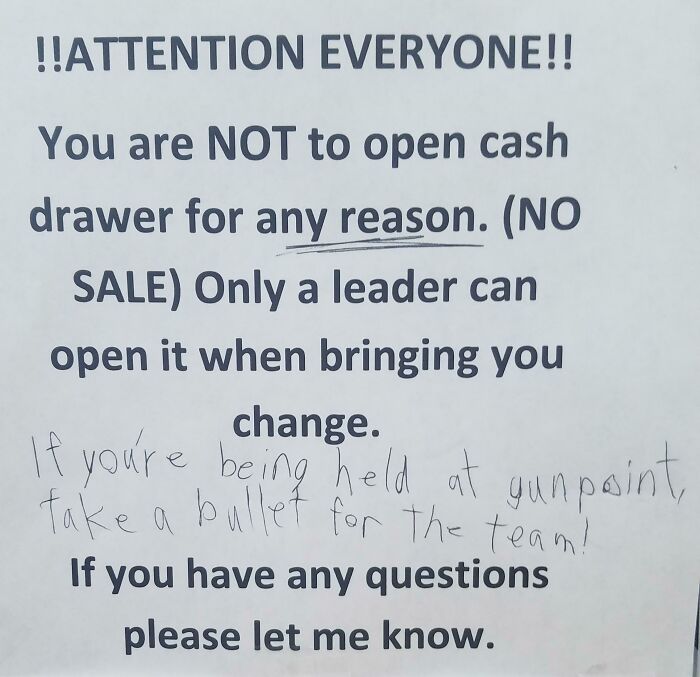 !!ATTENTION EVERYONE!!
You are NOT to open cash
drawer for any reason. (NO
SALE) Only a leader can
open it when bringing you
change.
If you're being held at gunpoint,
take a bullet for the team!
If you have any questions
please let me know.